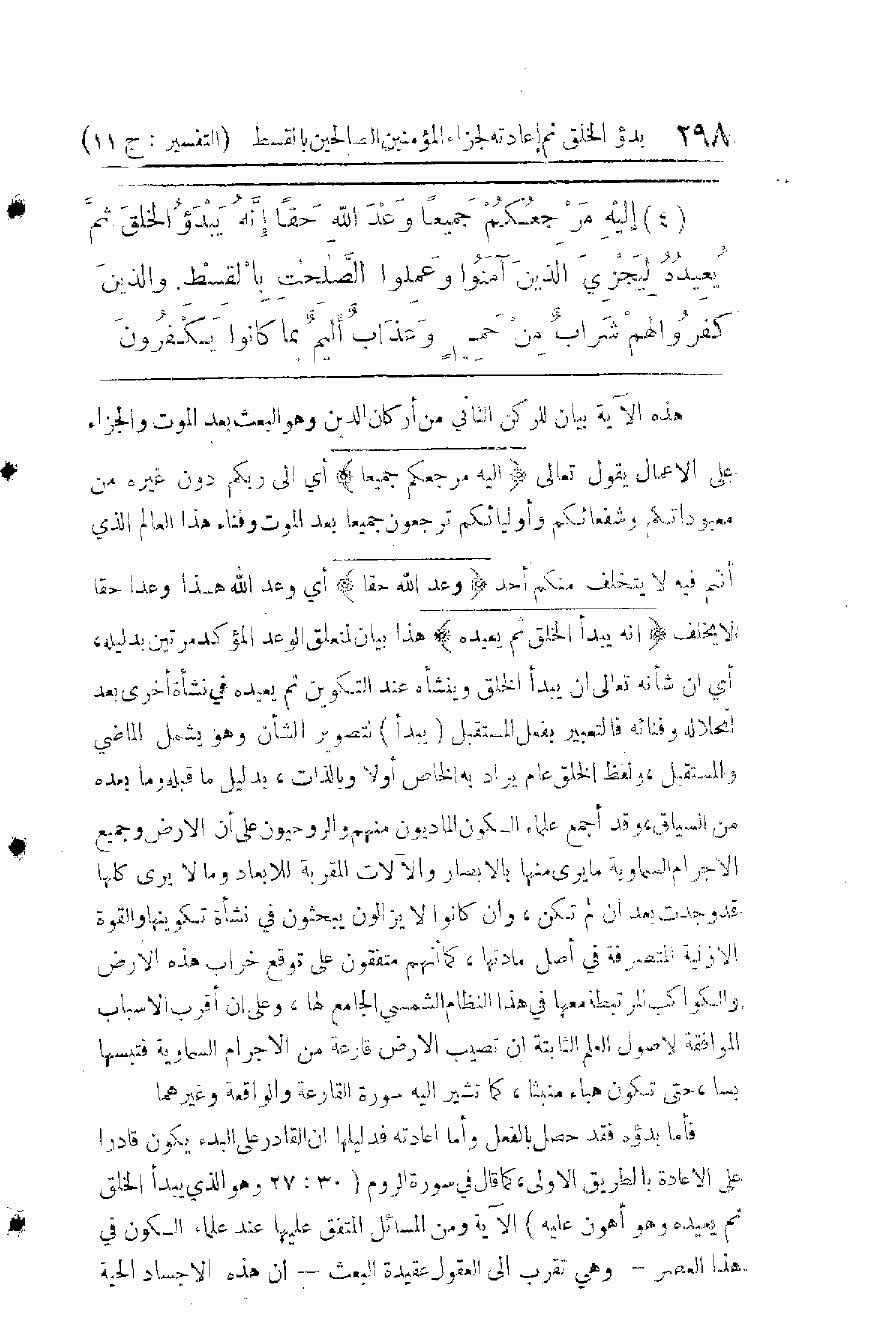 ٢٩٨ بدؤ الخلق ثم إعادته لجزاء المؤمنين الصالحين بالقسط (التفسير : ج ١١)
(٤) إِلَيْهِ مَرْجِعُكُمْ جَمِيعًا وَعْدَ اللهِ حَقًّا إِنَّهُ يَبْدَؤُ الْخَلْقَ ثُمَّ
يُعِيدُهُ لِيَجْزِيَ الَّذِينَ آمَنُوا وَعَمِلُوا الصَّلِحَتِ بِالْقِسْطِ. وَالَّذِينَ
كَفَرُوا لَهُمْ شَرَابٌ مِنْ حَمِيمٍ وَعَذَابٌ أَلِيمٌ بِمَا كَانُوا يَكْفُرُونَ
هذه الآية بيان للركن الثاني من أركان الدين وهو البعث بعد الموت والجزاء
على الاعمال يقول تعالى ﴿ اليه مرجعكم جميعا ﴾ أي الى ربكم دون غيره من
معبوداتكم وشفعائكم وأوليائكم ترجعون جميعا بعد الموت وفناء هذا العالم الذي
أنتم فيه لا يتخلف منكم أحد ﴿ وعد الله حقا ﴾ أي وعد الله هذا وعدا حقا
لا يخلف ﴿ انه يبدأ الخلق ثم يعيده ﴾ هذا بيان لمتعلق الوعد المؤكد مرتين بدليله،
أي ان شأنه تعالى ان يبدأ الخلق وينشأه عند التكوين ثم يعيده في نشأة أخرى بعد
انحلاله وفنائه فالتعبير بفعل المستقبل ( يبدأ ) لتصوير الشأن وهو يشمل الماضي
والمستقبل ، ولفظ الخلق عام يراد به الخاص أولا وبالذات ، بدليل ما قبله وما بعده
من السياق، وقد أجمع علماء الكون الماديون منهم والروحيون على أن الارض وجميع
الاجرام السماوية ما يرى منها بالابصار والآلات المقربة للابعاد وما لا يرى كلها
قد وجدت بعد ان لم تكن ، وان كانوا لا يزالون يبحثون في نشأة تكوينها والقوة
الازلية المتصرفة في أصل مادتها ، كما أنهم متفقون على توقع خراب هذه الارض
والكواكب المرتبطة معها في هذا النظام الشمسي الجامع لها ، وعلى ان أقرب الاسباب
الموافقة لاصول العلم الثابتة ان تصيب الارض قارعة من الاجرام السماوية فتبسها
بسا ، حتى تكون هباء منبثا ، كما تشير اليه سورة القارعة والواقعة وغيرهما
فأما بدؤه فقد حصل بالفعل وأما اعادته فدليلها ان القادر على البدء يكون قادرا
على الاعادة بالطريق الاولى، كما قال في سورة الروم ( ٣٠ : ٢٧ وهو الذي يبدأ الخلق
ثم يعيده وهو أهون عليه ) الآية ومن المسائل المتفق عليها عند علماء الكون في
هذا العصر — وهي تقرب الى العقول عقيدة البعث — ان هذه الاجساد الحية